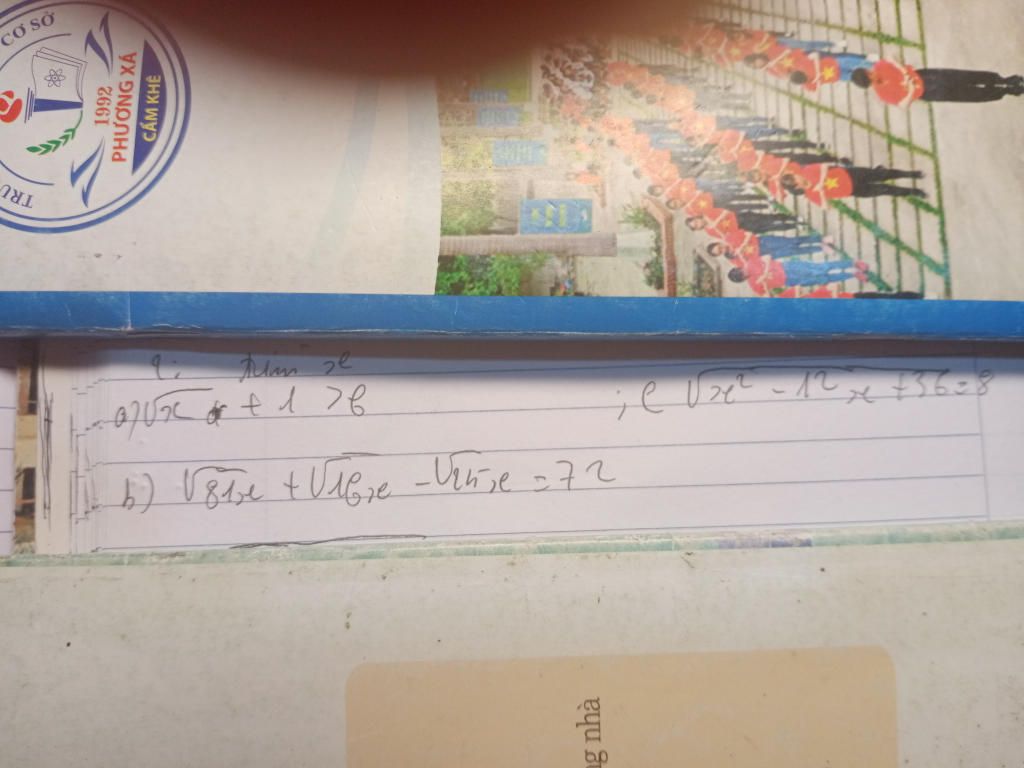 CƠ SỞ
TRƯ
1992
PHƯƠNG XÁ
CẨM KHÊ
tìm x
a) √x + 1 > 6 ; c √x² - 12x + 36 = 8
b) √81x + √16x - √25x = 72
ng nhà